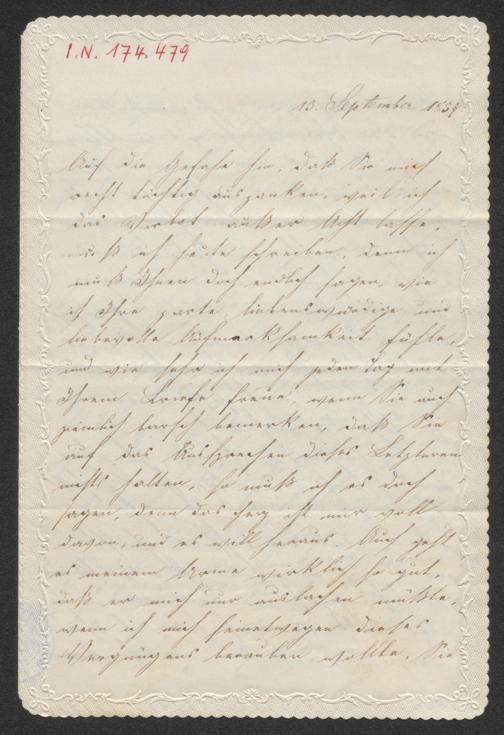 I.N. 174.479
13. September 1859
Auf die Gefahr hin, daß Sie mich
recht tüchtig auszanken, weil ich
das Verbot außer Acht lasse,
muß ich heute schreiben, denn ich
muß Ihnen doch endlich sagen, wie
ich Ihre zarte, liebenswürdige und
liebevolle Aufmerksamkeit fühle,
und wie sehr ich mich jeden Tag mit
Ihrem Briefe freue, wenn Sie auch
ziemlich barsch bemerken, daß Sie
auf das Aussprechen dieses Letzteren
nichts halten, so muß ich es doch
sagen, denn das Herz ist mir voll
davon, und es will heraus. Auch geht
es meinem Arme wirklich so gut,
daß er mich nur auslachen müßte,
wenn ich mich seinetwegen dieses
Vergnügens berauben wollte. Sie